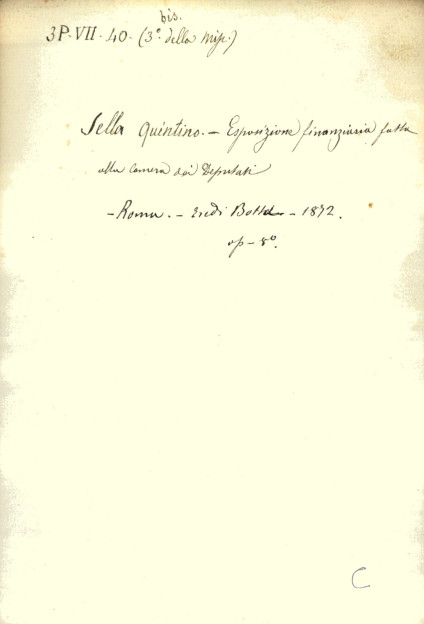 bis.
3P. VII. 40. (3º. della Misc.)
Sella Quintino. — Esposizione finanziaria fatta
alla Camera dei Deputati
— Roma. — Eredi Botta — 1872.
op — 8º.
C